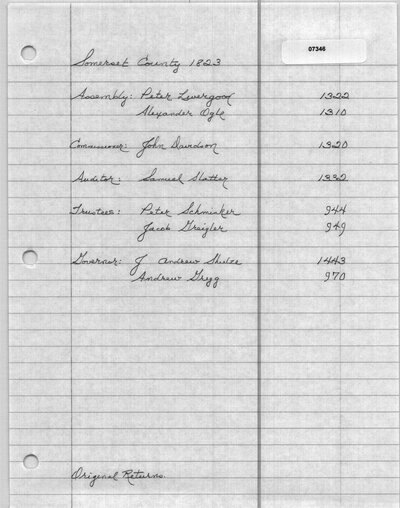 07346
Somerset County 1823
Assembly: Peter Levergood 1322
Alexander Ogle 1310
Commissioner: John Davidson 1320
Auditor: Samuel Statler 1332
Trustees: Peter Schmucker 944
Jacob Graigler 949
Governor: J Andrew Shulze 1443
Andrew Gregg 970
Original Returns.